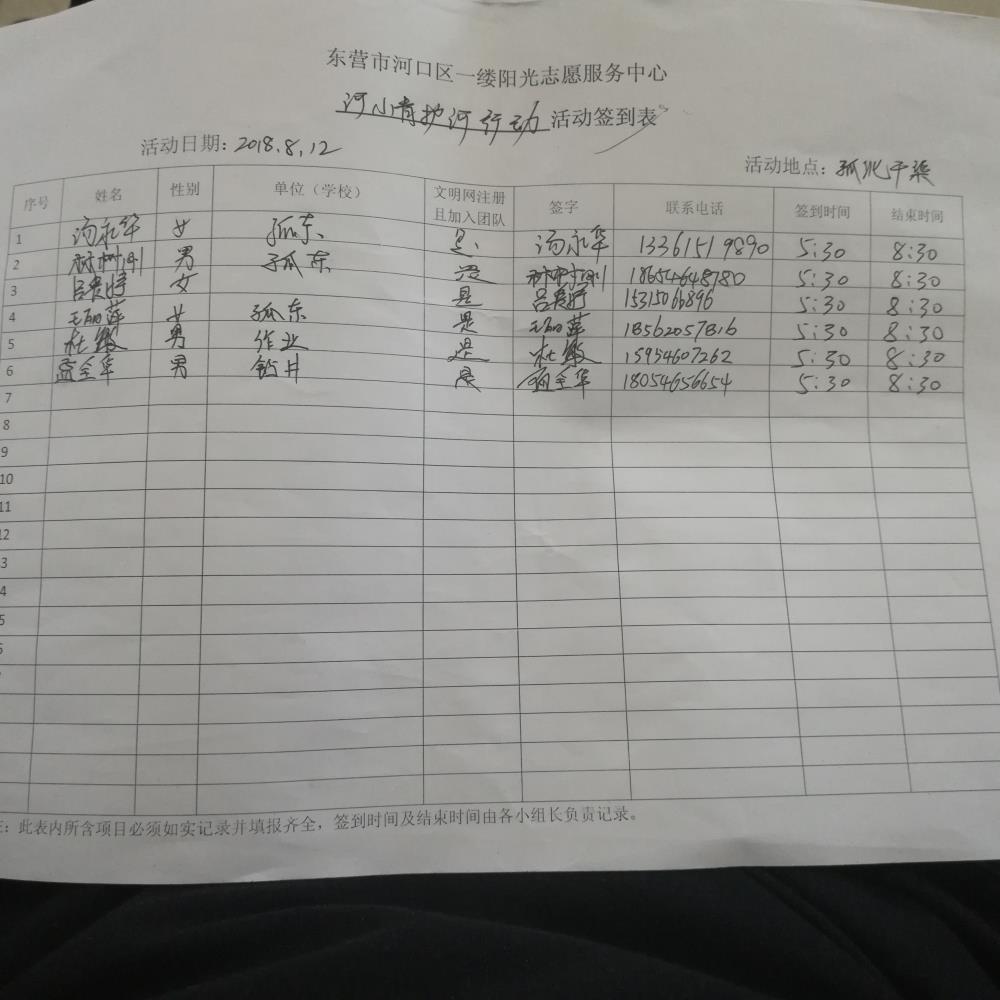 东营市河口区一缕阳光志愿服务中心
河小青护河行动活动签到表
活动日期：2018.8.12
活动地点：孤北干渠
序号 姓名 性别 单位（学校） 文明网注册且加入团队 签字 联系电话 签到时间 结束时间
1 汤永华 女 孤东 是 汤永华 13361519890 5:30 8:30
2 林树刚 男 孤东 没 林树刚 18654648780 5:30 8:30
3 女 是 15315066896 5:30 8:30
4 王丽萍 女 孤东 是 王丽萍 18562057816 5:30 8:30
5 男 作业 是 15954607262 5:30 8:30
6 男 钻井 是 18054656654 5:30 8:30
7
8
9
10
11
12
3
4
5
注：此表内所含项目必须如实记录并填报齐全，签到时间及结束时间由各小组长负责记录。